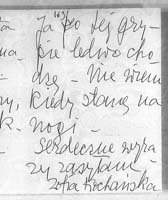 Ja po tej gry-
pie ledwo cho
dzę - Nie wiem
kiedy stanę na
nogi -
Serdeczne wyra
zy zasyłam
Zofia Kochańska